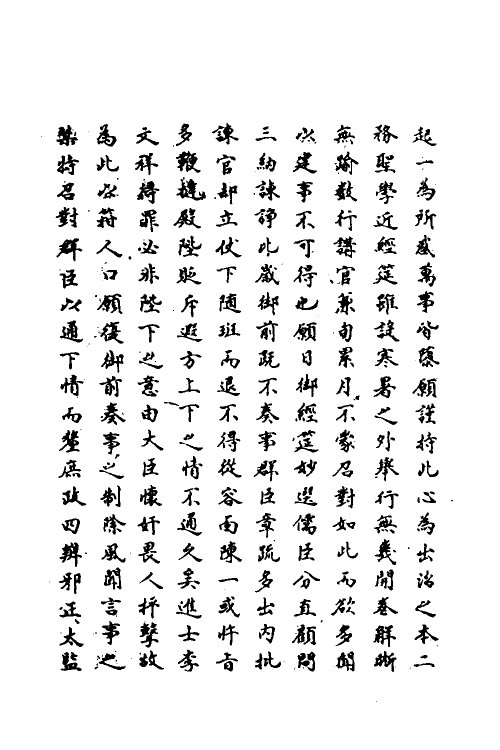 起一為所惑萬事皆隳願謹持此心為出治之本二
務聖學近經筵雖設寒暑之外舉行無幾開卷解晰
無踰數行講官兼旬累月不蒙召對如此而欲多聞
以建事不可得也願日御經筵妙選儒臣分直顧問
三納諫諍比歲御前既不奏事群臣章疏多出內批
諫官却立仗下随班而退不得從容面陳一或忤旨
多鞭撻殿陛貶斥遐方上下之情不通久矣進士李
文祥得罪必非陛下之意由大臣懷奸畏人抨擊故
為此以箝人口願復御前奏事之制除風聞言事之
禁特召對群臣以通下情而釐庶政四辯邪正太監